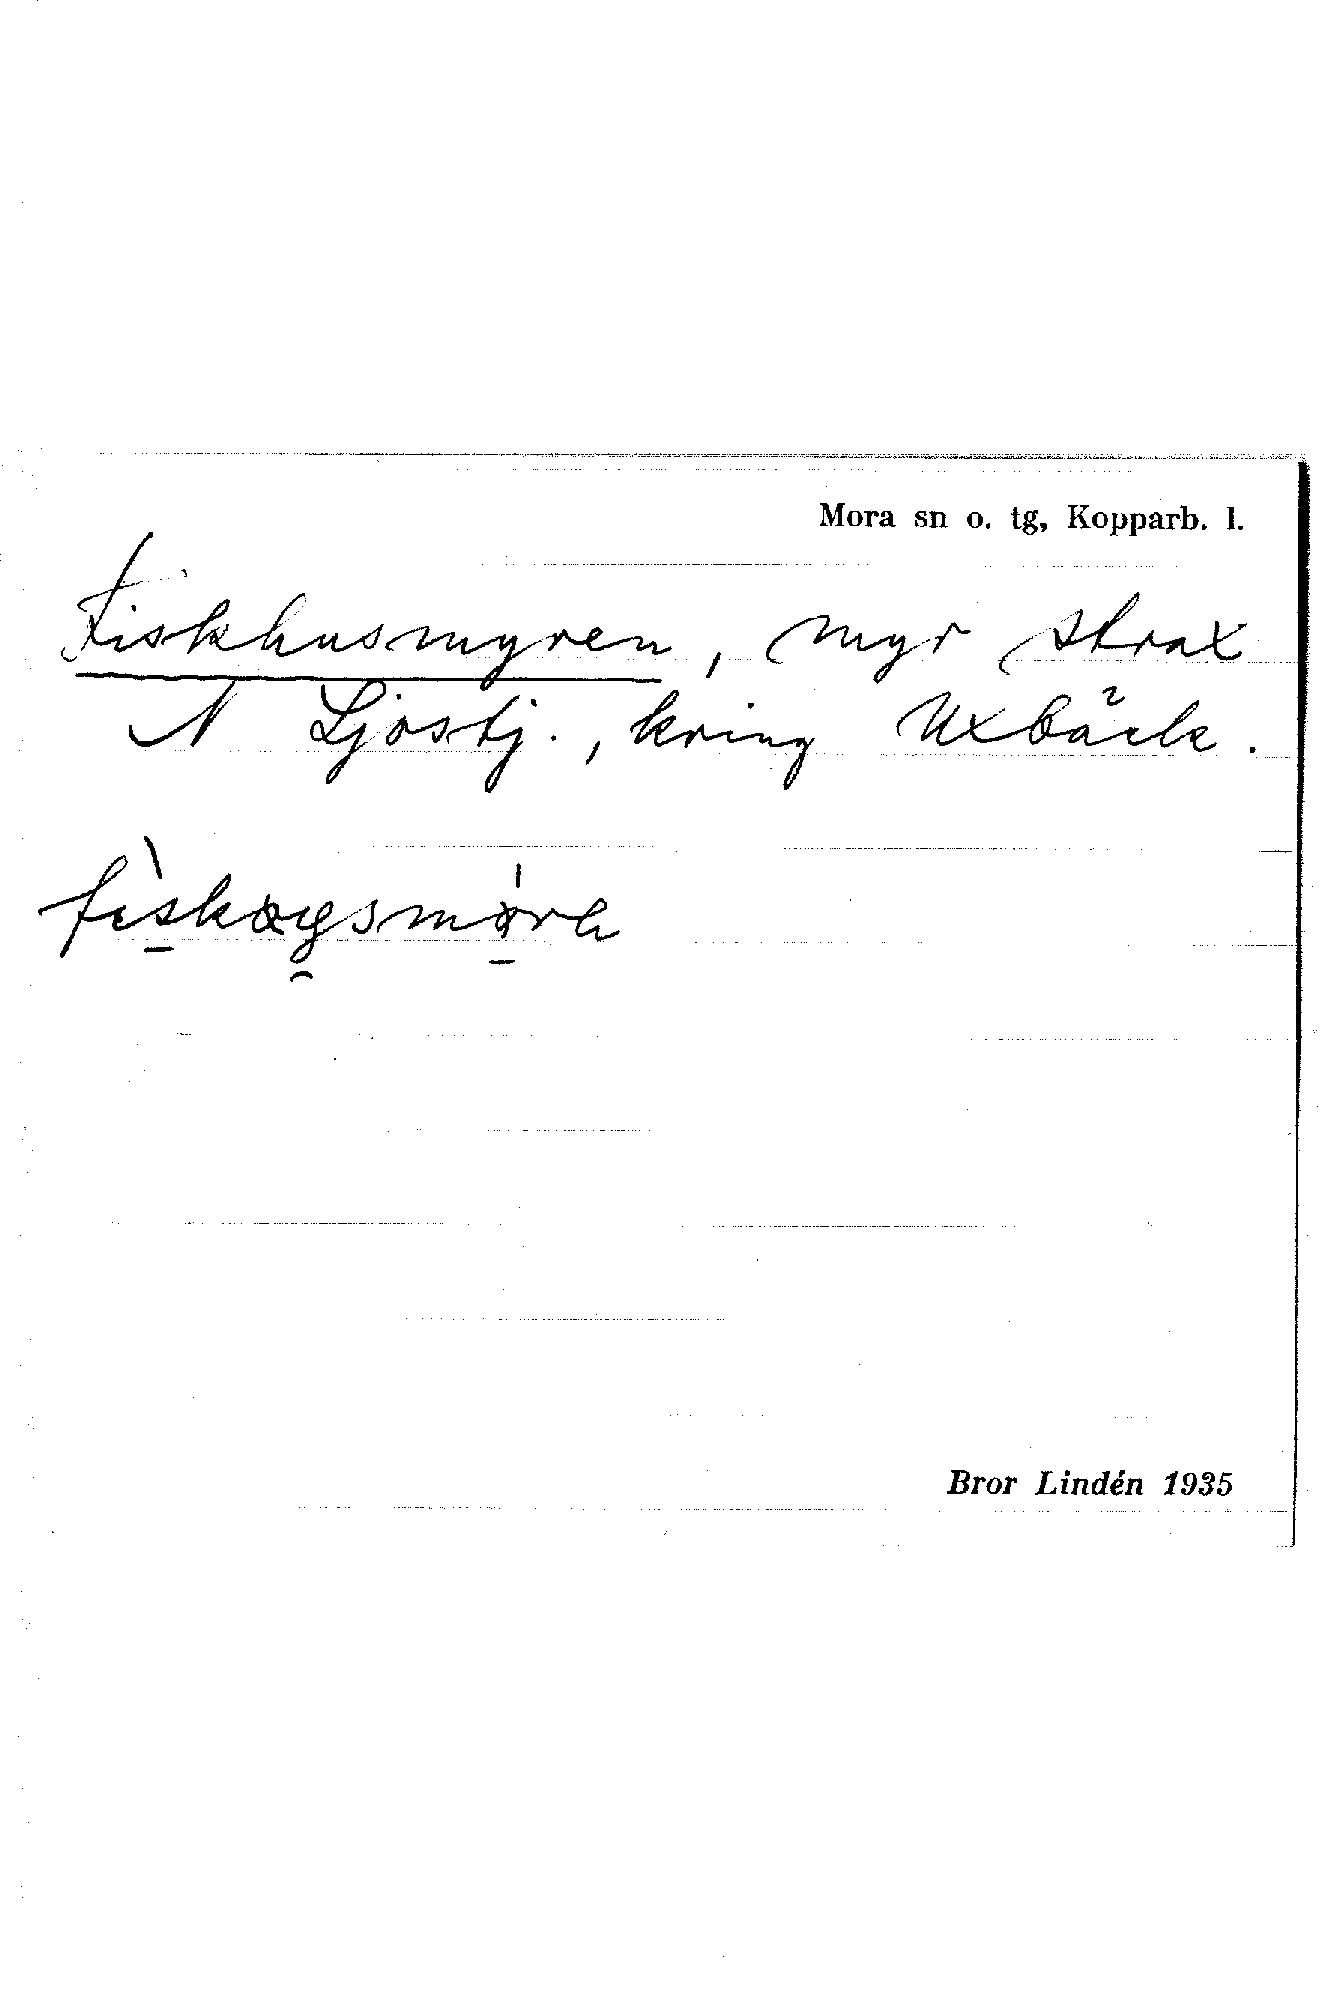 Mora sn o. tg, Kopparb. l.
Fiskhusmyren, myr strax
N Ljostj., kring Uxbäck.
Bror Lindén 1935